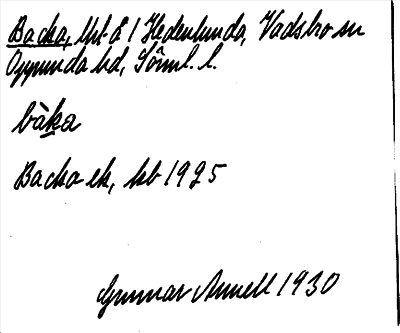 Backa, lht å 1 Hedenlunda, Vadsbro sn
Oppunda hd, Södml. l.
bàka
Backa ek, kb 1925
Gunnar Annell 1930